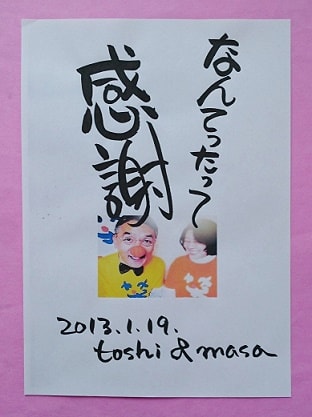 なんてったって
感謝
2013.1.19.
toshi & masa